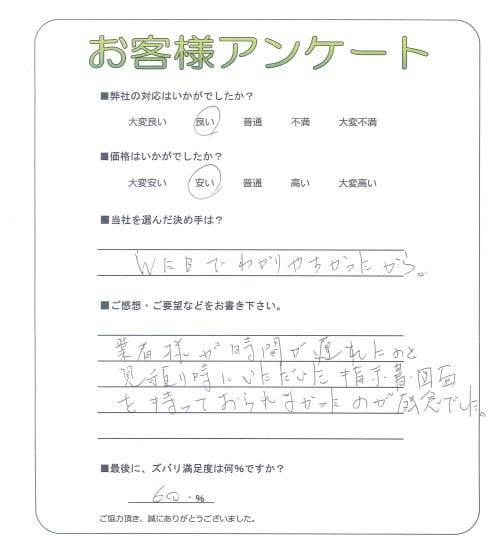 お客様アンケート
■弊社の対応はいかがでしたか？
大変良い 良い 普通 不満 大変不満
■価格はいかがでしたか？
大変安い 安い 普通 高い 大変高い
■当社を選んだ決め手は？
WEBでわかりやすかったから。
■ご感想・ご要望などをお書き下さい。
業者様が時間が遅れたのと
見積り時にいただいた指示書・図面
を持っておられなかったのが残念でした。
■最後に、ズバリ満足度は何％ですか？
60 ・％
ご協力頂き、誠にありがとうございました。